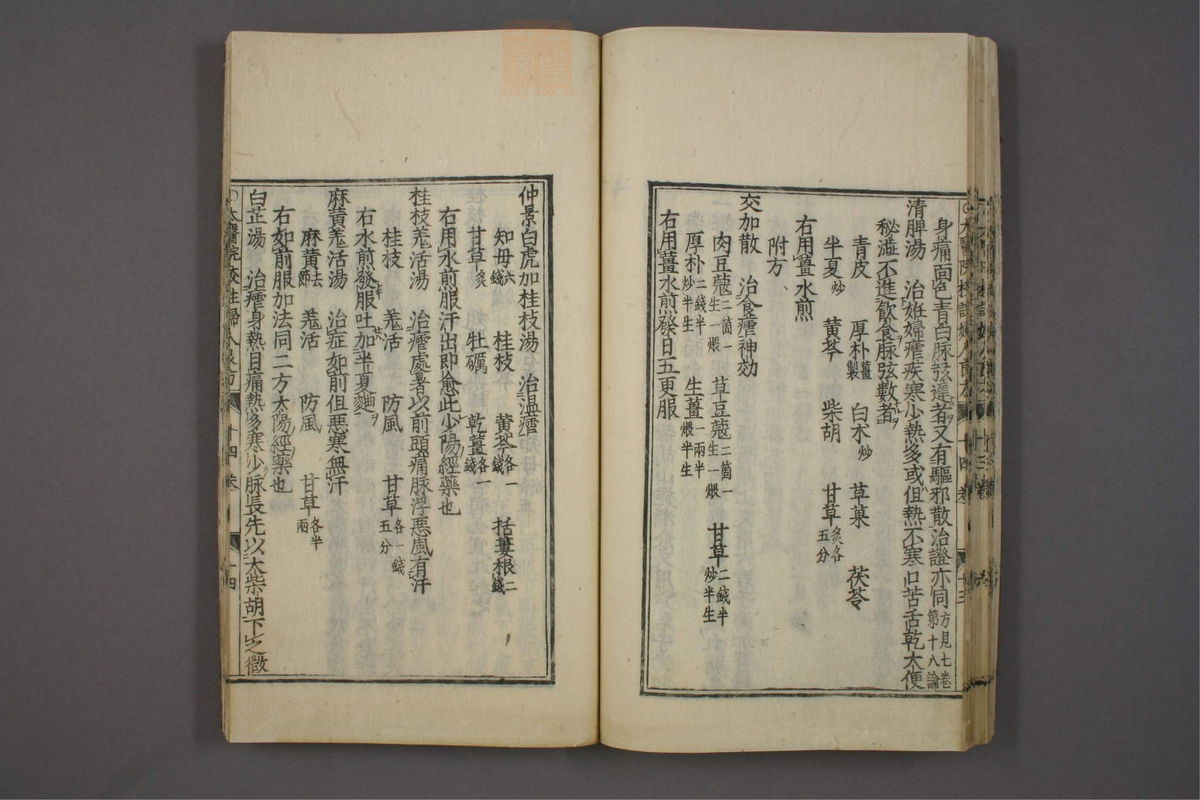 身痛面色青白脉弦遲者又有驅邪散治證亦同方見七卷第十八論
清脾湯 治姙婦瘧疾寒少熱多或但熱不寒口苦舌乾大便
秘澁不進飲食脉弦數者
青皮 厚朴薑製 白朮炒 草菓 茯苓
半夏炒 黄芩 柴胡 甘草炙各五分
右用薑水煎
附方
交加散 治食瘧神効
肉豆蔻二箇一生一煨 草豆蔻二箇一生一煨 甘草二錢半炒半生
厚朴二錢半炒半生 生薑一兩半煨半生
右用薑水煎發日五更服
仲景白虎加桂枝湯 治温瘧
知母六錢 桂枝 黄芩各一錢 括蔞根二錢
甘草炙 牡礪 乾薑各一錢
右用水煎服汗出即愈此少陽經藥也
桂枝羗活湯 治瘧處暑以前頭痛脉浮悪風有汗
桂枝 羗活 防風 甘草各一錢五分
右水煎發服吐加半夏麯
麻黄羗活湯 治症如前但悪寒無汗
麻黄去節 羗活 防風 甘草各半兩
右如前服加法同二方太陽經藥也
白芷湯 治瘧身熱目痛熱多寒少脉長先以大柴胡下之微
十四卷 十四